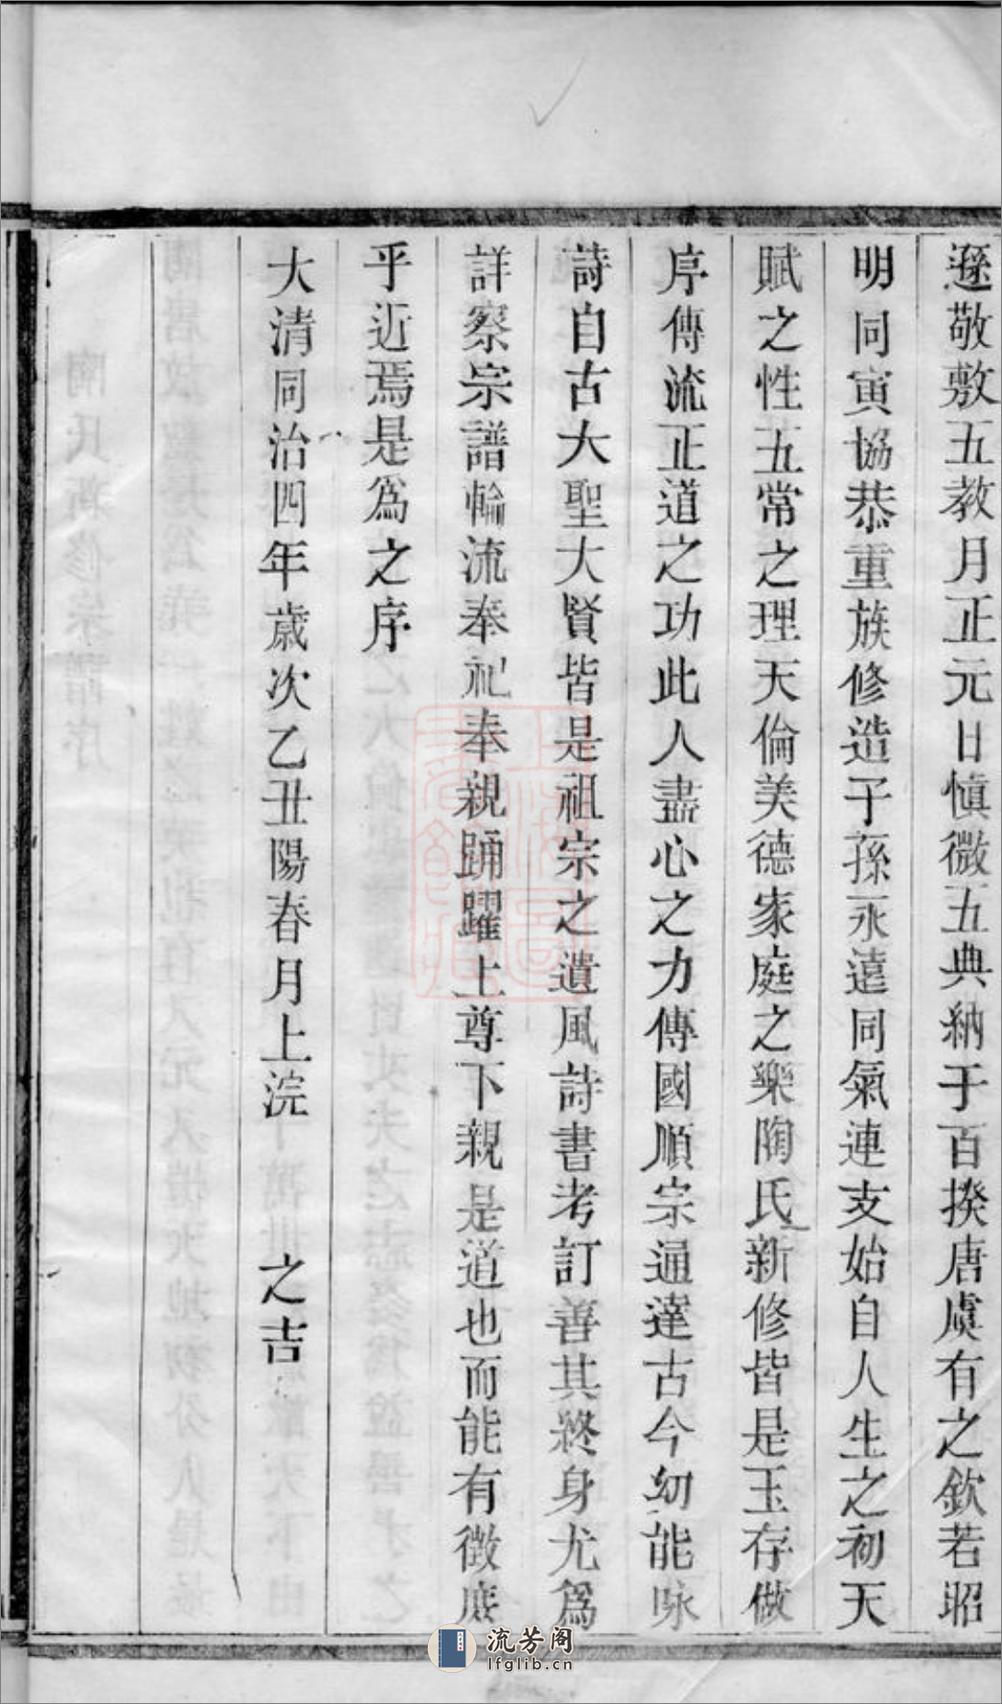 遜敬敷五教月正元日愼微五典納于百揆唐虞有之欽若昭
明同寅協恭重族修造子孫永遠同氣連支始自人生之初天
賦之性五常之理天倫美德家庭之樂陶氏新修皆是玉存做
序傳流正道之功此人盡心之力傳國順宗通達古今幼能咏
詩自古大聖大賢皆是祖宗之遺風詩書考訂善其終身尤爲
詳察宗譜輪流奉祀奉親踊躍上尊下親是道也而能有徵庶
乎近焉是爲之序
大清同治四年歲次乙丑陽春月上浣 之吉
流芳阁
lfglib.cn